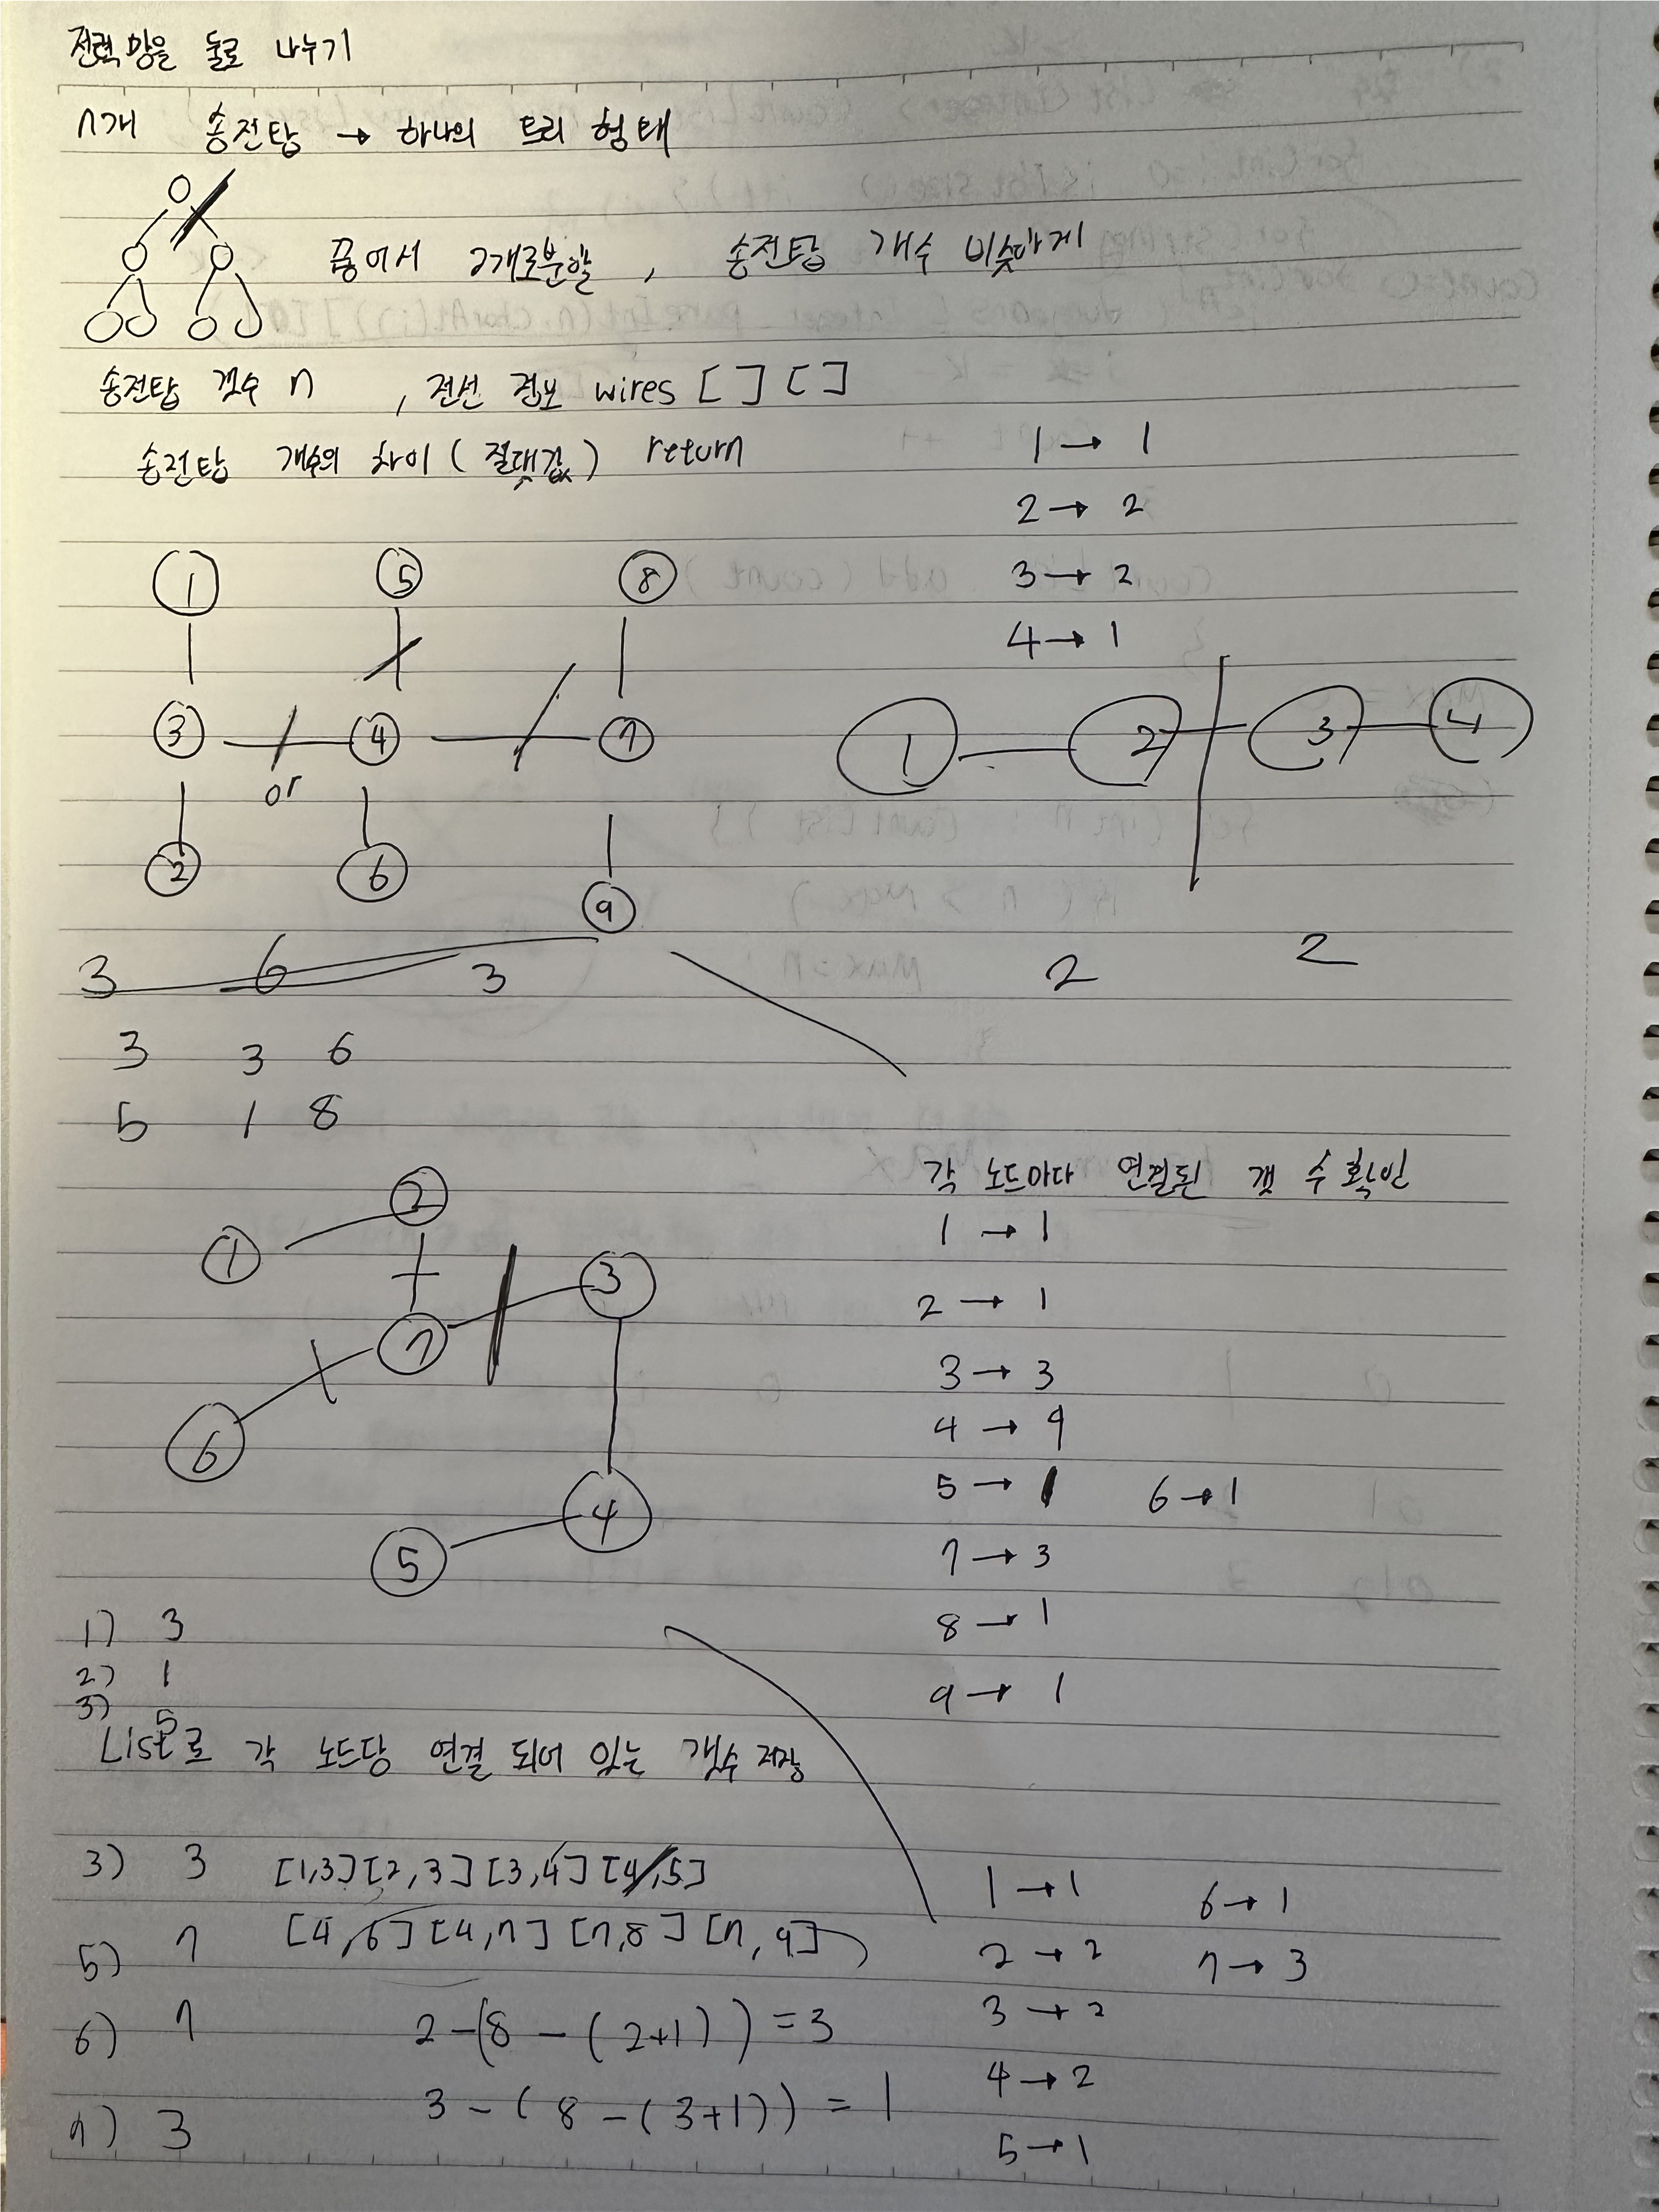 전력망을 둘로 나누기
n개 송전탑 → 하나의 트리 형태
끊어서 2개로분할, 송전탑 개수 비슷하게
송전탑 갯수 n , 전선 정보 wires [ ] [ ]
송전탑 개수의 차이 (절댓값) return
1 → 1
2 → 2
3 → 2
4 → 1
1 5 8
3 4 7
or
2 6 9
1 2 3 4
3 6 3
2 2
3 3 6
5 1 8
각 노드마다 연결된 갯 수 확인
1 → 1
2 → 1
3 → 3
4 → 4
5 → 1 6 → 1
7 → 3
8 → 1
9 → 1
2
1
3
7
6
4
5
1) 3
2) 1
3) 5
List로 각 노드당 연결 되어 있는 갯수 저장
3) 3 [1,3] [2,3] [3,4] [4,5]
5) 7 [4,6] [4,7] [7,8] [7,9]
6) 7 2-(8-(2+1)) = 3
7) 3 3-(8-(3+1)) = 1
1 → 1 6 → 1
2 → 2 7 → 3
3 → 2
4 → 2
5 → 1